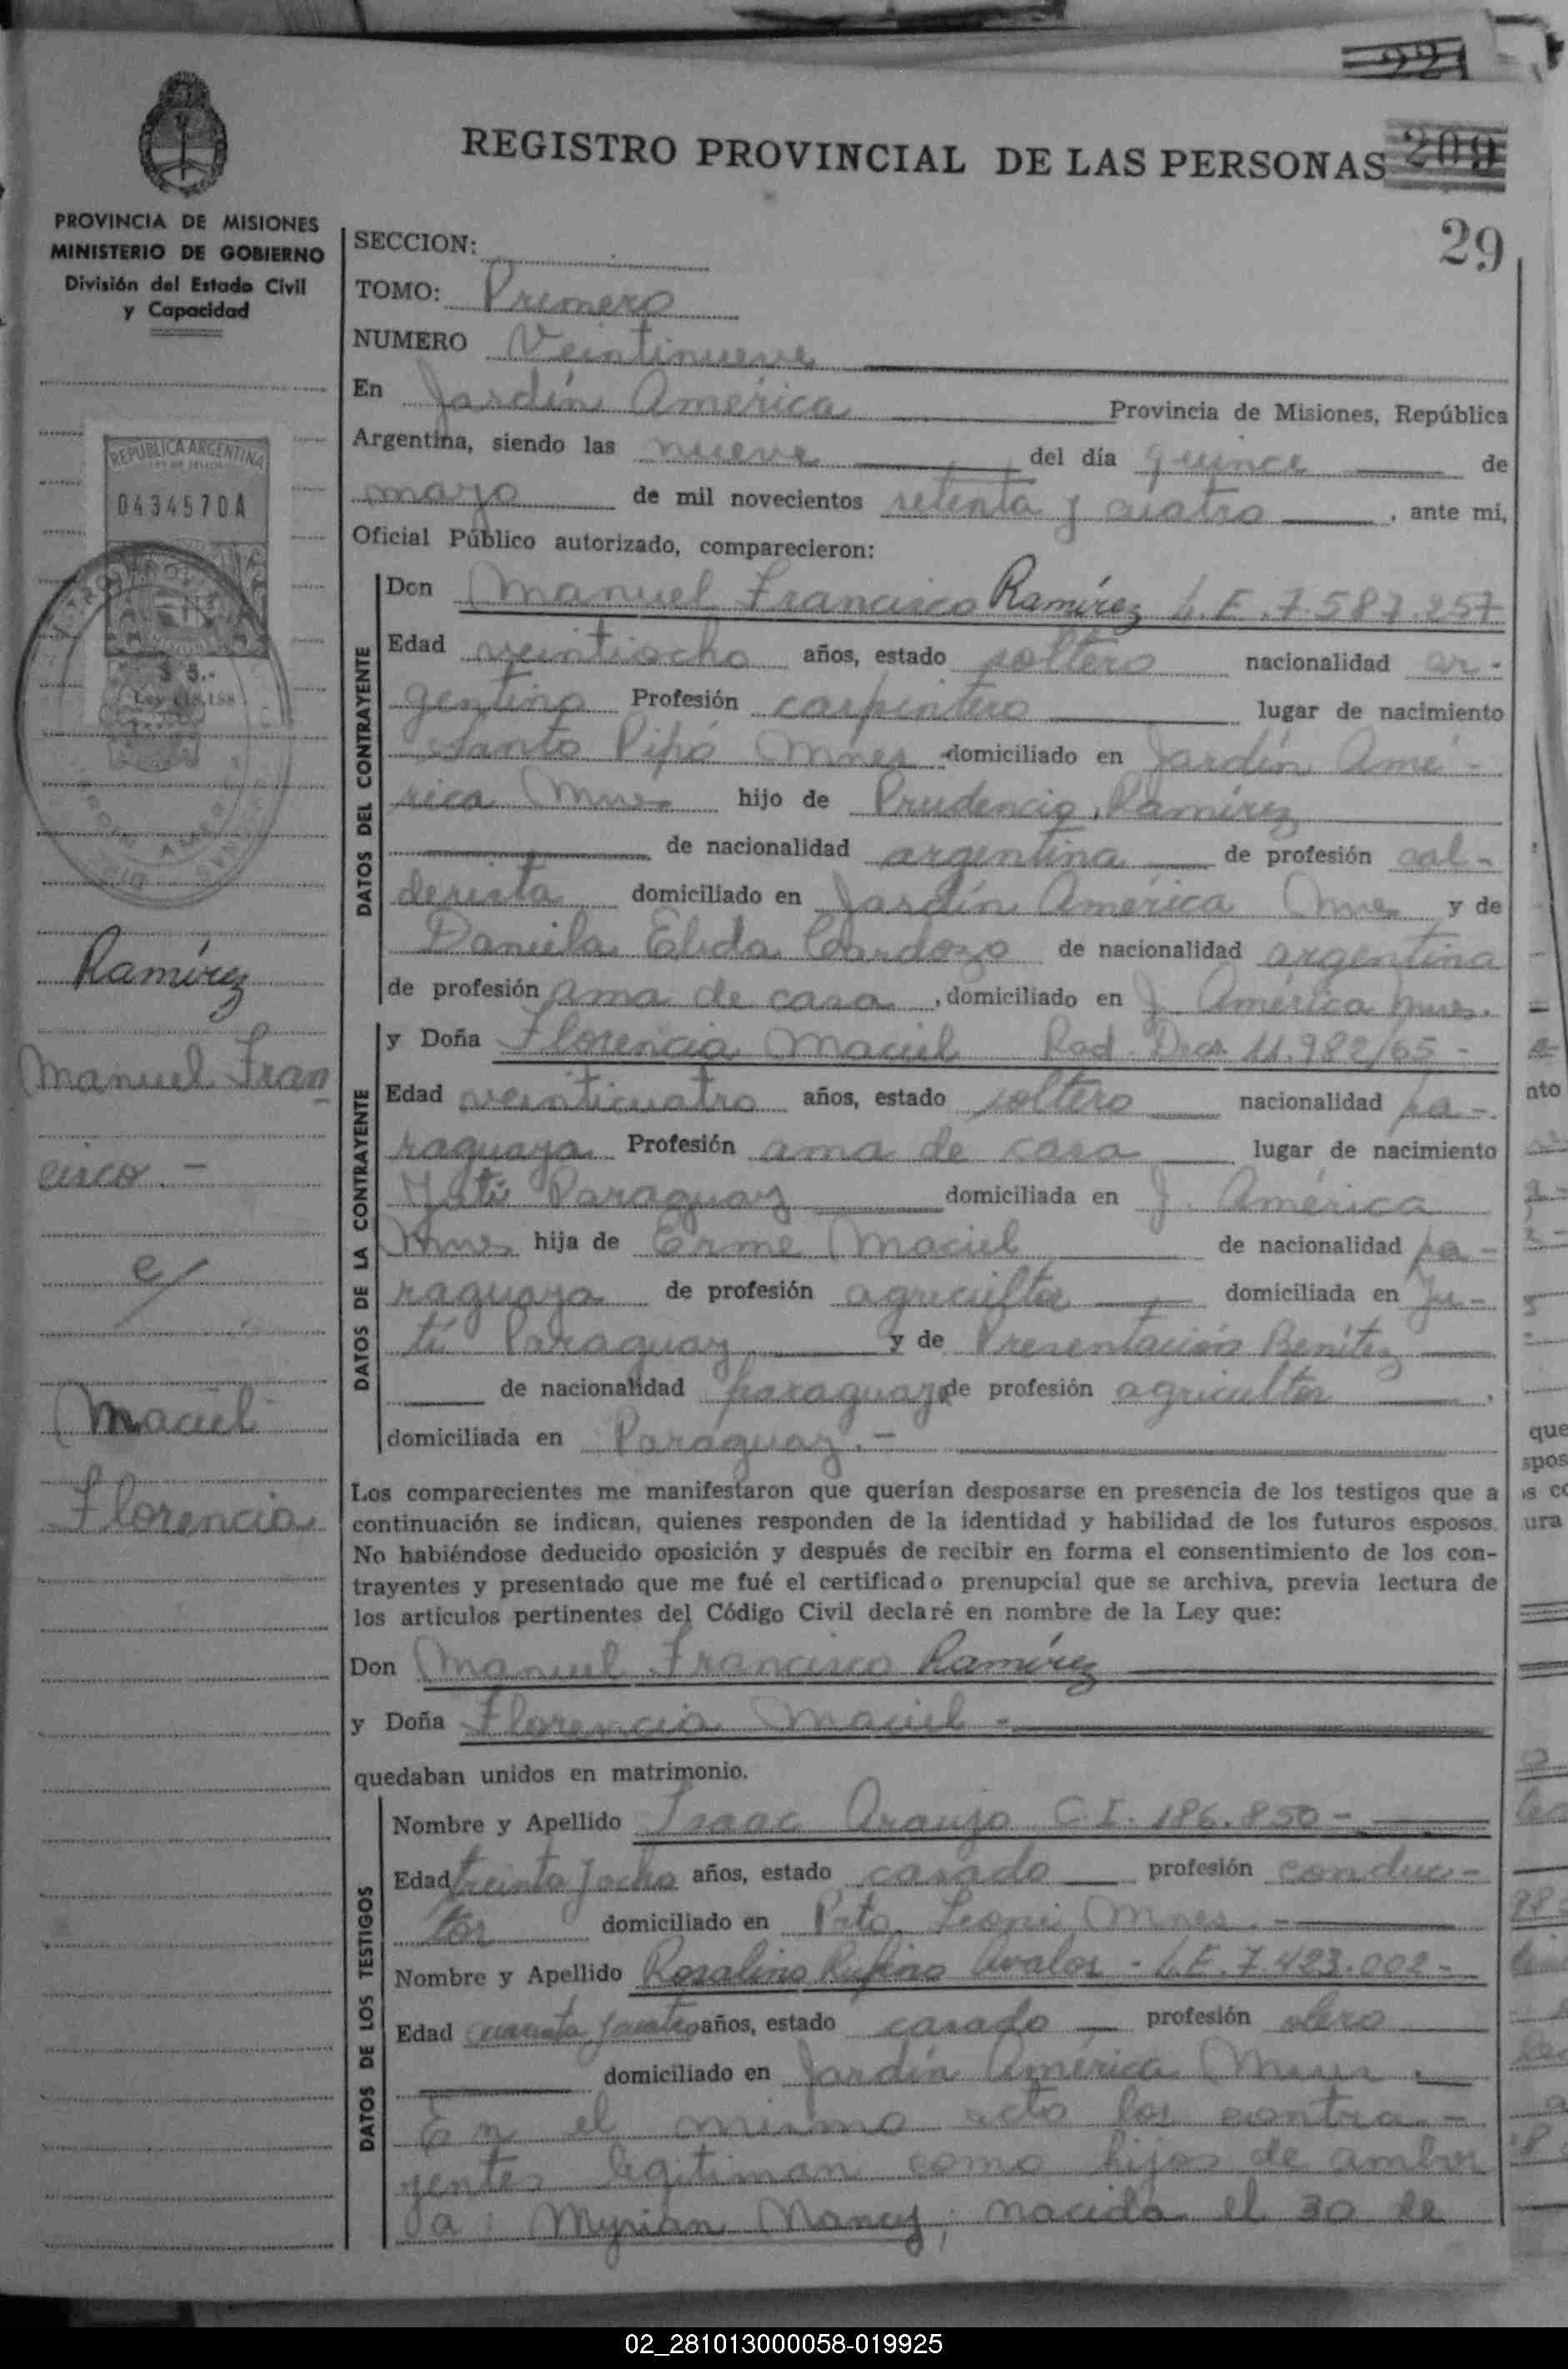 221
REGISTRO PROVINCIAL DE LAS PERSONAS 209
29
PROVINCIA DE MISIONES
MINISTERIO DE GOBIERNO
División del Estado Civil
y Capacidad
REPUBLICA ARGENTINA
0434570A
$ 5.-
Ramírez
Manuel Fran
cisco.-
c/
Maciel
Florencia
SECCION:
TOMO: Primero
NUMERO Veintinueve
En Jardín América Provincia de Misiones, República
Argentina, siendo las nueve del día quince de
mayo de mil novecientos setenta y cuatro, ante mi,
Oficial Público autorizado, comparecieron:
DATOS DEL CONTRAYENTE
Don Manuel Francisco Ramírez L.E. 7.587.257
Edad veintiocho años, estado soltero nacionalidad ar-
gentina Profesión carpintero lugar de nacimiento
Santo Pipó Mnes domiciliado en Jardín Amé-
rica Mnes hijo de Prudencio Ramírez
de nacionalidad argentina de profesión cal-
derista domiciliado en Jardín América Mnes y de
Daniela Elida Cardozo de nacionalidad argentina
de profesión ama de casa, domiciliado en J. América Mnes.
DATOS DE LA CONTRAYENTE
y Doña Florencia Maciel Rad. 11.982/65-
Edad veinticuatro años, estado soltero nacionalidad pa-
raguaya Profesión ama de casa lugar de nacimiento
Yutí Paraguay domiciliada en J. América
Mnes hija de Erme Maciel de nacionalidad pa-
raguaya de profesión agricultor domiciliada en Yu-
tí Paraguay y de Presentación Benítez
de nacionalidad paraguaya de profesión agricultor.
domiciliada en Paraguay.-
Los comparecientes me manifestaron que querían desposarse en presencia de los testigos que a
continuación se indican, quienes responden de la identidad y habilidad de los futuros esposos.
No habiéndose deducido oposición y después de recibir en forma el consentimiento de los con-
trayentes y presentado que me fué el certificado prenupcial que se archiva, previa lectura de
los artículos pertinentes del Código Civil declaré en nombre de la Ley que:
Don Manuel Francisco Ramírez
y Doña Florencia Maciel-
quedaban unidos en matrimonio.
DATOS DE LOS TESTIGOS
Nombre y Apellido Isaac Araujo C.I. 186.850-
Edad treinta y ocho años, estado casado profesión conduc-
tor domiciliado en Pto. Leoni Mnes.-
Nombre y Apellido Rosalino Rufino Avalos - L.E. 7.423.002-
Edad cuarenta y cuatro años, estado casado profesión
domiciliado en Jardín América Mnes.
En el mismo acto los contra-
yentes legitiman como hijos de ambos
a: Myrian Nancy, nacida el 30 de
02_281013000058-019925